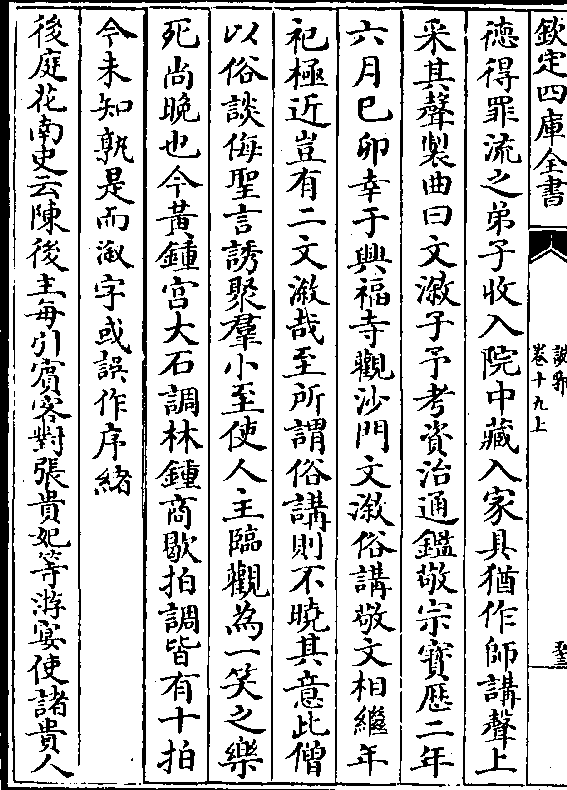 欽定四庫全書
説郛
卷十九上
徳得罪流之弟子收入院中藏入家具猶作師講聲上
采其聲製曲曰文溆子予考資治通鑑敬宗寳厯二年
六月巳卯幸于興福寺觀沙門文溆俗講敬文相繼年
祀極近豈有二文溆哉至所謂俗講則不曉其意此僧
以俗談侮聖言誘聚羣小至使人主臨觀為一笑之樂
死尚晚也今黃鍾宫大石調林鍾商歇拍調皆有十拍
今未知孰是而溆字或誤作序緒
後庭花南史云陳後主每引賓客對張貴妃等游宴使諸貴人